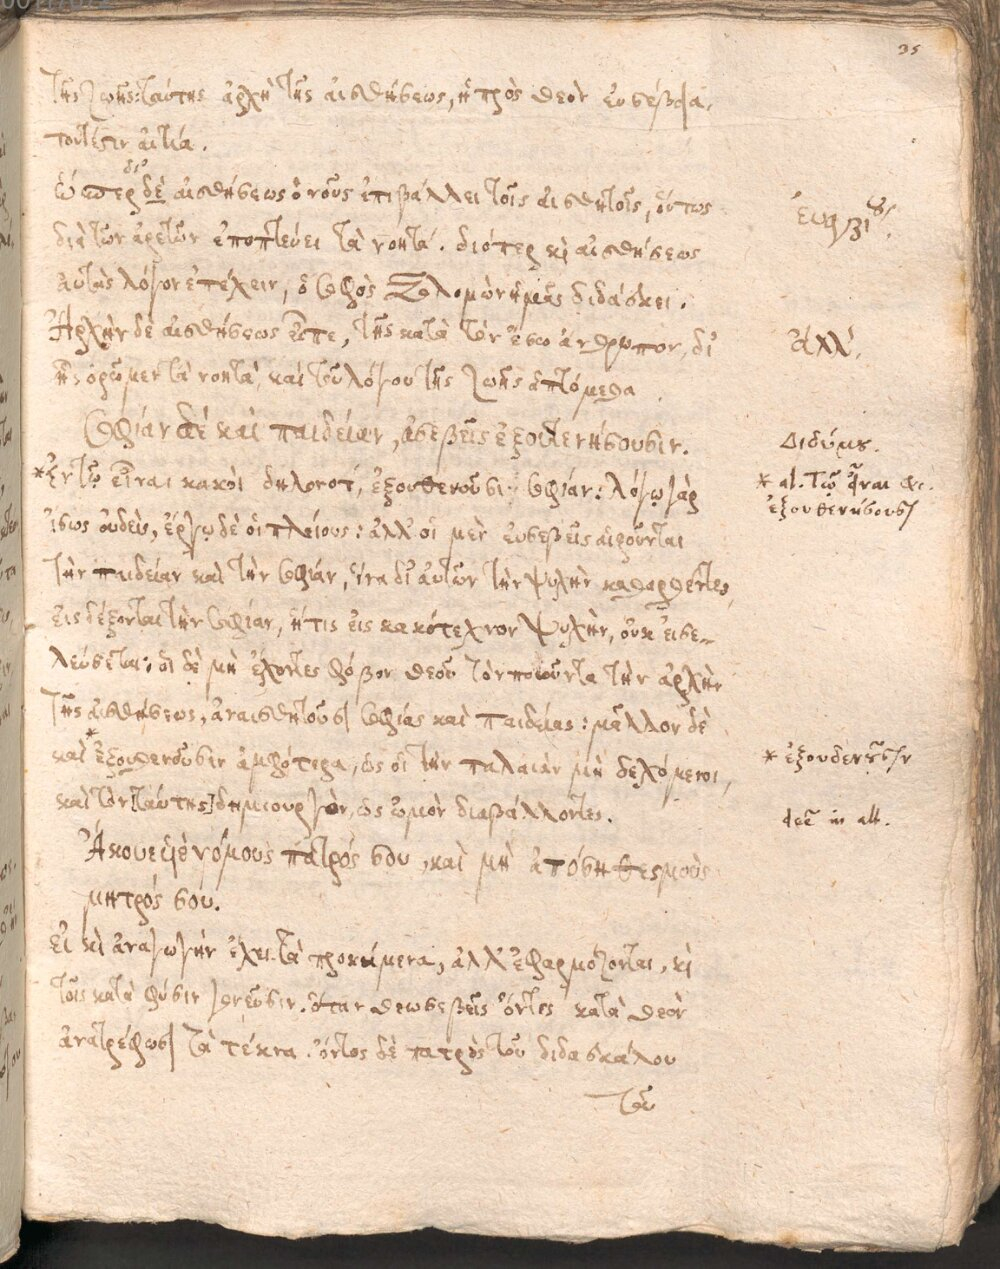 35
τῆς ζωῆς ταύτης ἀρχὴ τῆς αἰσθήσεως, ἡ πρὸς θεὸν εὐσέβεια,
τουτέστιν αἰτία.
ὥσπερ δὲ δι' αἰσθήσεως ὁ νοῦς ἐπιβάλλει τοῖς αἰσθητοῖς, οὕτως
διὰ τῶν ἀρετῶν ἐποπτεύει τὰ νοητά. διόπερ κὶ αἰσθήσεως
αὐτὰς λόγον ἐπέχειν, ὁ σοφὸς Σολομὼν ἡμᾶς διδάσκει.
Ἀρχὴν δὲ αἰσθήσεως εἶπε, τῆς κατὰ τὸν ἔσω ἄνθρωπον, δι'
ἧς ὁρῶμεν τὰ νοητὰ, καὶ τοῦ λόγου τῆς ζωῆς ἁπτόμεθα.
Ἀλλ.
Σοφίαν δὲ καὶ παιδείαν, ἀσεβεῖς ἐξουθενήσουσιν.
Διδύμου.
*Ἐν τῷ εἶναι κακοὶ δηλονότι, ἐξουθενοῦσι σοφίαν: λόγῳ γὰρ
* al. τῷ εἶναι &c.
ἐξουθενήσουσι
ἴσως οὐδεὶς, ἔργῳ δὲ οἱ πλείους: ἀλλ' οἱ μὲν εὐσεβεῖς αἱροῦνται
τὴν παιδείαν καὶ τὴν σοφίαν, ἵνα δι' αὐτῶν τὴν ψυχὴν καθαρθέντες,
εἰσδέξονται τὴν σοφίαν, ἥτις εἰς κακότεχνον ψυχὴν, οὐκ εἰσε-
λεύσεται: οἱ δὲ μὴ ἔχοντες φόβον θεοῦ τὸν ποιοῦντα τὴν ἀρχὴν
τῆς αἰσθήσεως, ἀναισθητοῦσι σοφίας καὶ παιδείας: μᾶλλον δὲ
καὶ *ἐξουθενοῦσιν ἀμφότερα, ὡς οἱ τὴν παλαιὰν μὴ δεχόμενοι,
* ἐξουδενοῦσιν
καὶ τὸν [ταύτης] δημιουργὸν, ὡς ὠμὸν διαβάλλοντες.
deest in alt.
Ἄκουε υἱὲ νόμους πατρός σου, καὶ μὴ ἀπώσῃ θεσμοὺς
μητρός σου.
Εἰ κὶ ἀναγωγὴν ἔχει τὰ προκείμενα, ἀλλ' ἐφαρμόζονται, κὶ
τοῖς κατὰ φύσιν γονεῦσιν. ὅταν θεοσεβεῖς ὄντες κατὰ θεὸν
ἀνατρέφωσι τὰ τέκνα. ὄντος δὲ πατρὸς τοῦ διδασκάλου
τοῦ